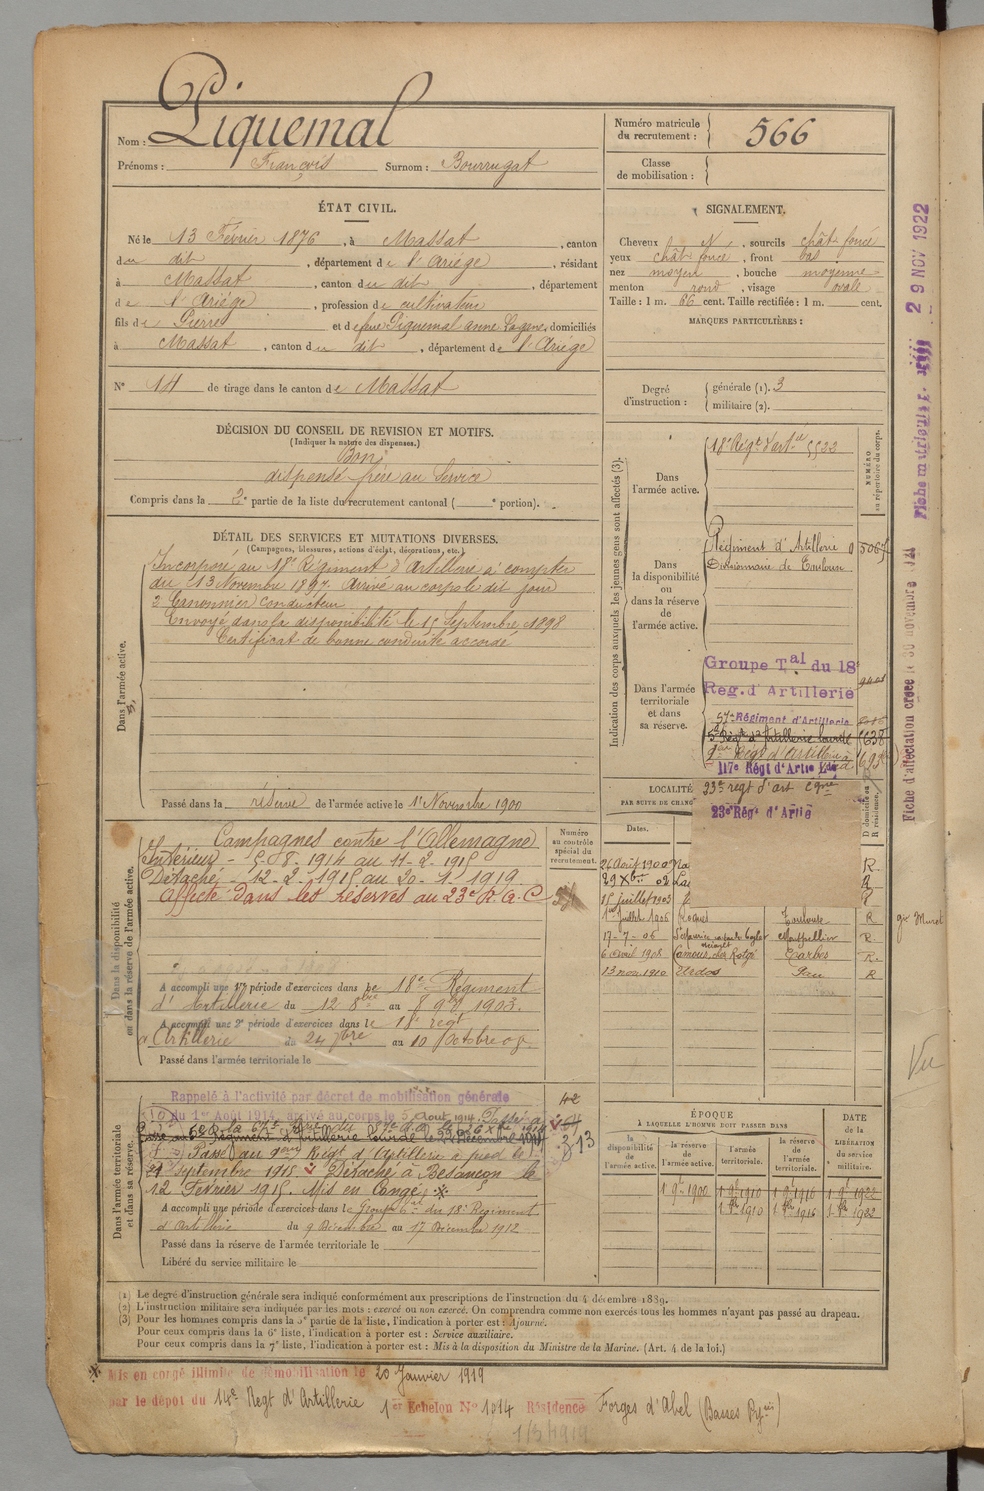 Nom : Piquemal
Prénoms : François Surnom : Bourrugat
Numéro matricule du recrutement : 566
Classe de mobilisation :
ÉTAT CIVIL.
Né le 13 Février 1876, à Massat, canton
du dit, département de l'Ariège, résidant
à Massat, canton du dit, département
de l'Ariège, profession de cultivateur
fils de Pierre et de feue Piquemal anne, domiciliés
à Massat, canton du dit, département de l'Ariège
N° 14 de tirage dans le canton de Massat
DÉCISION DU CONSEIL DE REVISION ET MOTIFS.
(Indiquer la nature des dispenses.)
Bon
dispensé frère au service
Compris dans la 2e partie de la liste du recrutement cantonal ( e portion).
SIGNALEMENT.
Cheveux , sourcils chât foncé
yeux chât foncé, front bas
nez moyen, bouche moyenne
menton rond, visage ovale
Taille : 1 m. 66 cent. Taille rectifiée : 1 m. cent.
MARQUES PARTICULIÈRES :
Degré d'instruction : générale (1). 3
militaire (2).
DÉTAIL DES SERVICES ET MUTATIONS DIVERSES.
(Campagnes, blessures, actions d'éclat, décorations, etc.)
Dans l'armée active.
Incorporé au 18e Régiment d'Artillerie à compter
du 13 Novembre 1897. Arrivé au corps le dit jour
2 Canonnier conducteur
Envoyé dans la disponibilité le 15 Septembre 1898
Certificat de bonne conduite accordé
Passé dans la réserve de l'armée active le 1er Novembre 1900
Indication des corps auxquels les jeunes gens sont affectés (3).
NUMÉRO au répertoire du corps.
Dans l'armée active.
18e Régt d'art.ie 5522
Dans la disponibilité ou dans la réserve de l'armée active.
Régiment d'Artillerie
Divisionnaire de Toulouse
Dans l'armée territoriale et dans sa réserve.
Groupe Tal du 18e
Reg. d'Artillerie
57e Régiment d'Artillerie
5e Régt d'Artillerie lourde
Régt d'Artillerie à
117e Régt d'Artie Lde
23e regt d'art cgne
23e Régt d'Artie
LOCALITÉ
PAR SUITE DE CHANG
Dates.
D domicile ou R résidence.
26 Août 1900 R.
29 Xbre 02
15 juillet 1903
1er Juillet 1905 Roques Toulouse R
17-7-06 Montpellier R.
6 Avril 1908 Tarbes R.
13 nov. 1910 Urdos Pau R
Muret
Vu
Dans la disponibilité ou dans la réserve de l'armée active.
Numéro au contrôle spécial du recrutement.
Campagnes contre l'Allemagne
Intérieur - 5-8-1914 au 11-2-1915
Détaché - 12-2-1915 au 20-1-1919
Affecté dans les réserves au 23e R.A.C
A accompli une 1re période d'exercices dans le 18e Régiment
d'Artillerie du 12 8bre au 8 9bre 1903.
A accompli une 2e période d'exercices dans le 18e regt
Artillerie du 24 7bre au 10 Octobre 09
Passé dans l'armée territoriale le
Dans l'armée territoriale et dans sa réserve.
Rappelé à l'activité par décret de mobilisation générale
du 1er Août 1914, arrivé au corps le 5 Aout 1914. Passé a
Régiment d'Artillerie lourde le 22 Décembre 1914
Passé au Régt d'Artillerie à pied le
21 Septembre 1915 Détaché à Besançon le
12 Février 1915. Mis en Congé
A accompli une période d'exercices dans le Groupe du 18e Régiment
d'Artillerie du 9 Décembre au 17 Décembre 1912
Passé dans la réserve de l'armée territoriale le
Libéré du service militaire le
42
313
ÉPOQUE
À LAQUELLE L'HOMME DOIT PASSER DANS
la disponibilité de l'armée active.
la réserve de l'armée active.
l'armée territoriale.
la réserve de l'armée territoriale.
DATE de la LIBÉRATION du service militaire.
1 9bre 1900 1 9bre 1910 1 9bre 1916 1 9bre 1922
1 8bre 1910 1 8bre 1916 1 8bre 1922
(1) Le degré d'instruction générale sera indiqué conformément aux prescriptions de l'instruction du 4 décembre 1889.
(2) L'instruction militaire sera indiquée par les mots : exercé ou non exercé. On comprendra comme non exercés tous les hommes n'ayant pas passé au drapeau.
(3) Pour les hommes compris dans la 5e partie de la liste, l'indication à porter est : Ajourné.
Pour ceux compris dans la 6e liste, l'indication à porter est : Service auxiliaire.
Pour ceux compris dans la 7e liste, l'indication à porter est : Mis à la disposition du Ministre de la Marine. (Art. 4 de la loi.)
Mis en congé illimité de démobilisation le 20 Janvier 1919
par le dépôt du 14e Regt d'Artillerie 1er Echelon N° 1014 Résidence Forges d'Abel (Basses Pyrées)
Fiche d'affectation créée le 30 novembre
Fiche matricule
29 NOV 1922